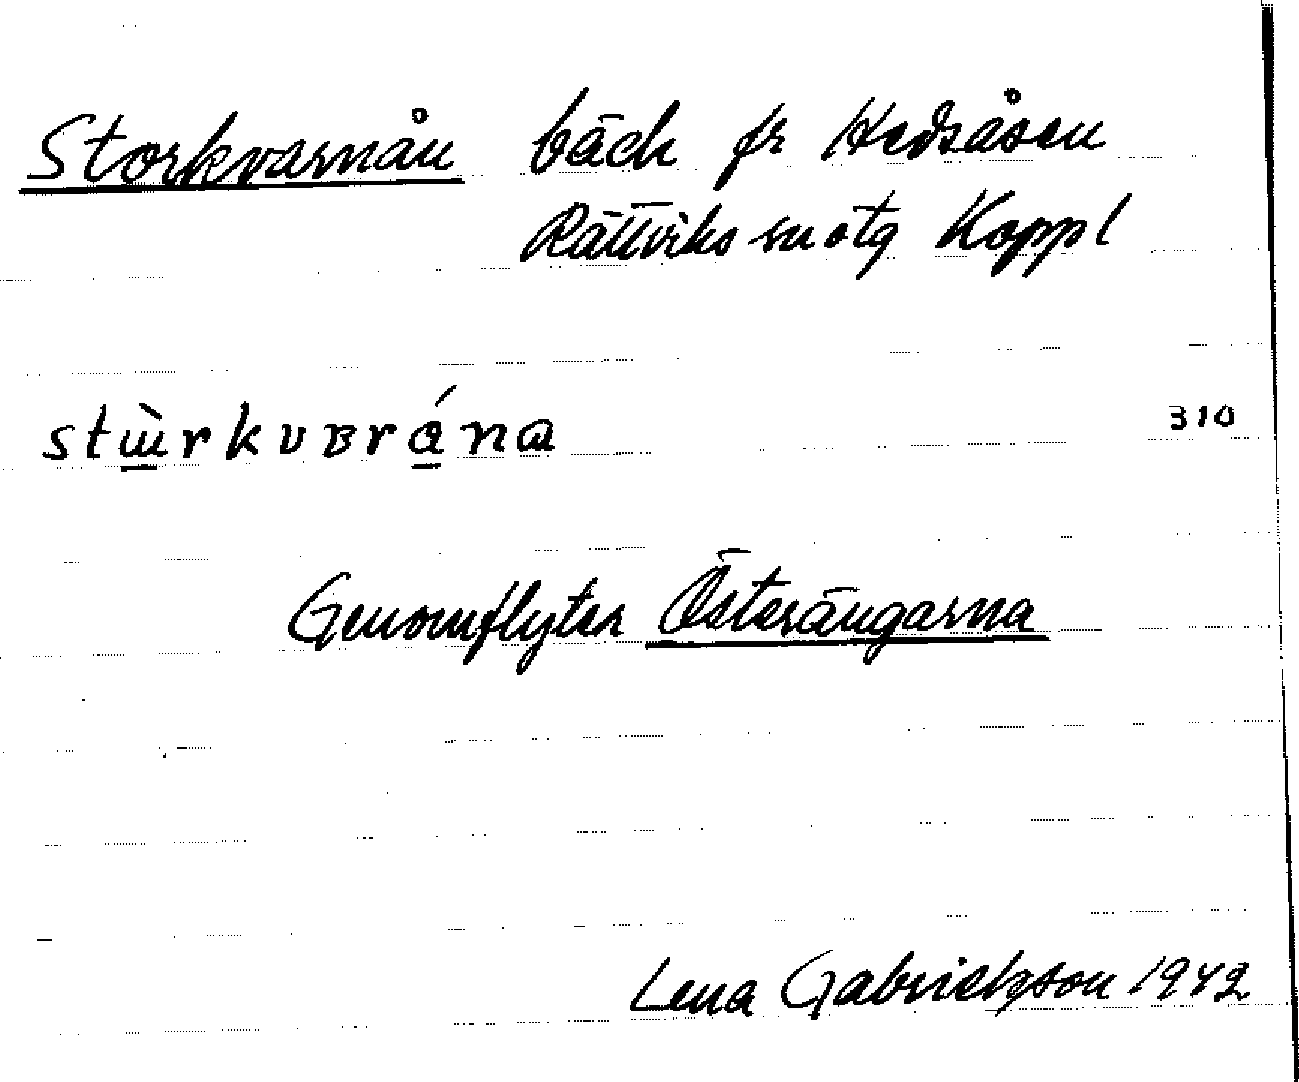 Storkvarnån bäck fr Hedsåsen
Rättviks sn o tg Koppl
stɯ̀rkvʙrána 310
Genomflyter Österängarna
Lena Gabrielsson 1942